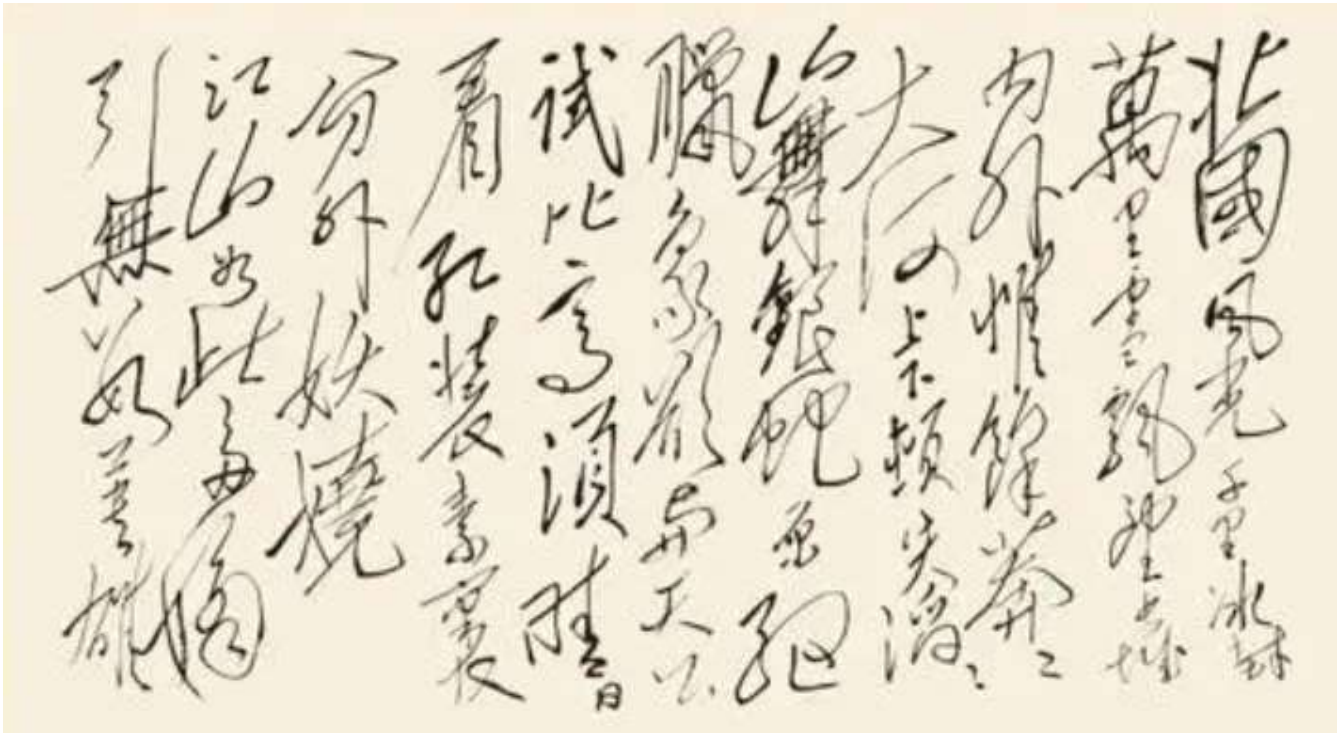 北國風光千里冰封
萬里雪飄望長城
內外惟餘莽々
大河上下頓失滔々
山舞銀蛇原馳
臘象欲與天公
試比高須晴日
看紅裝素裹
分外妖嬈
江山如此多嬌
引無數英雄